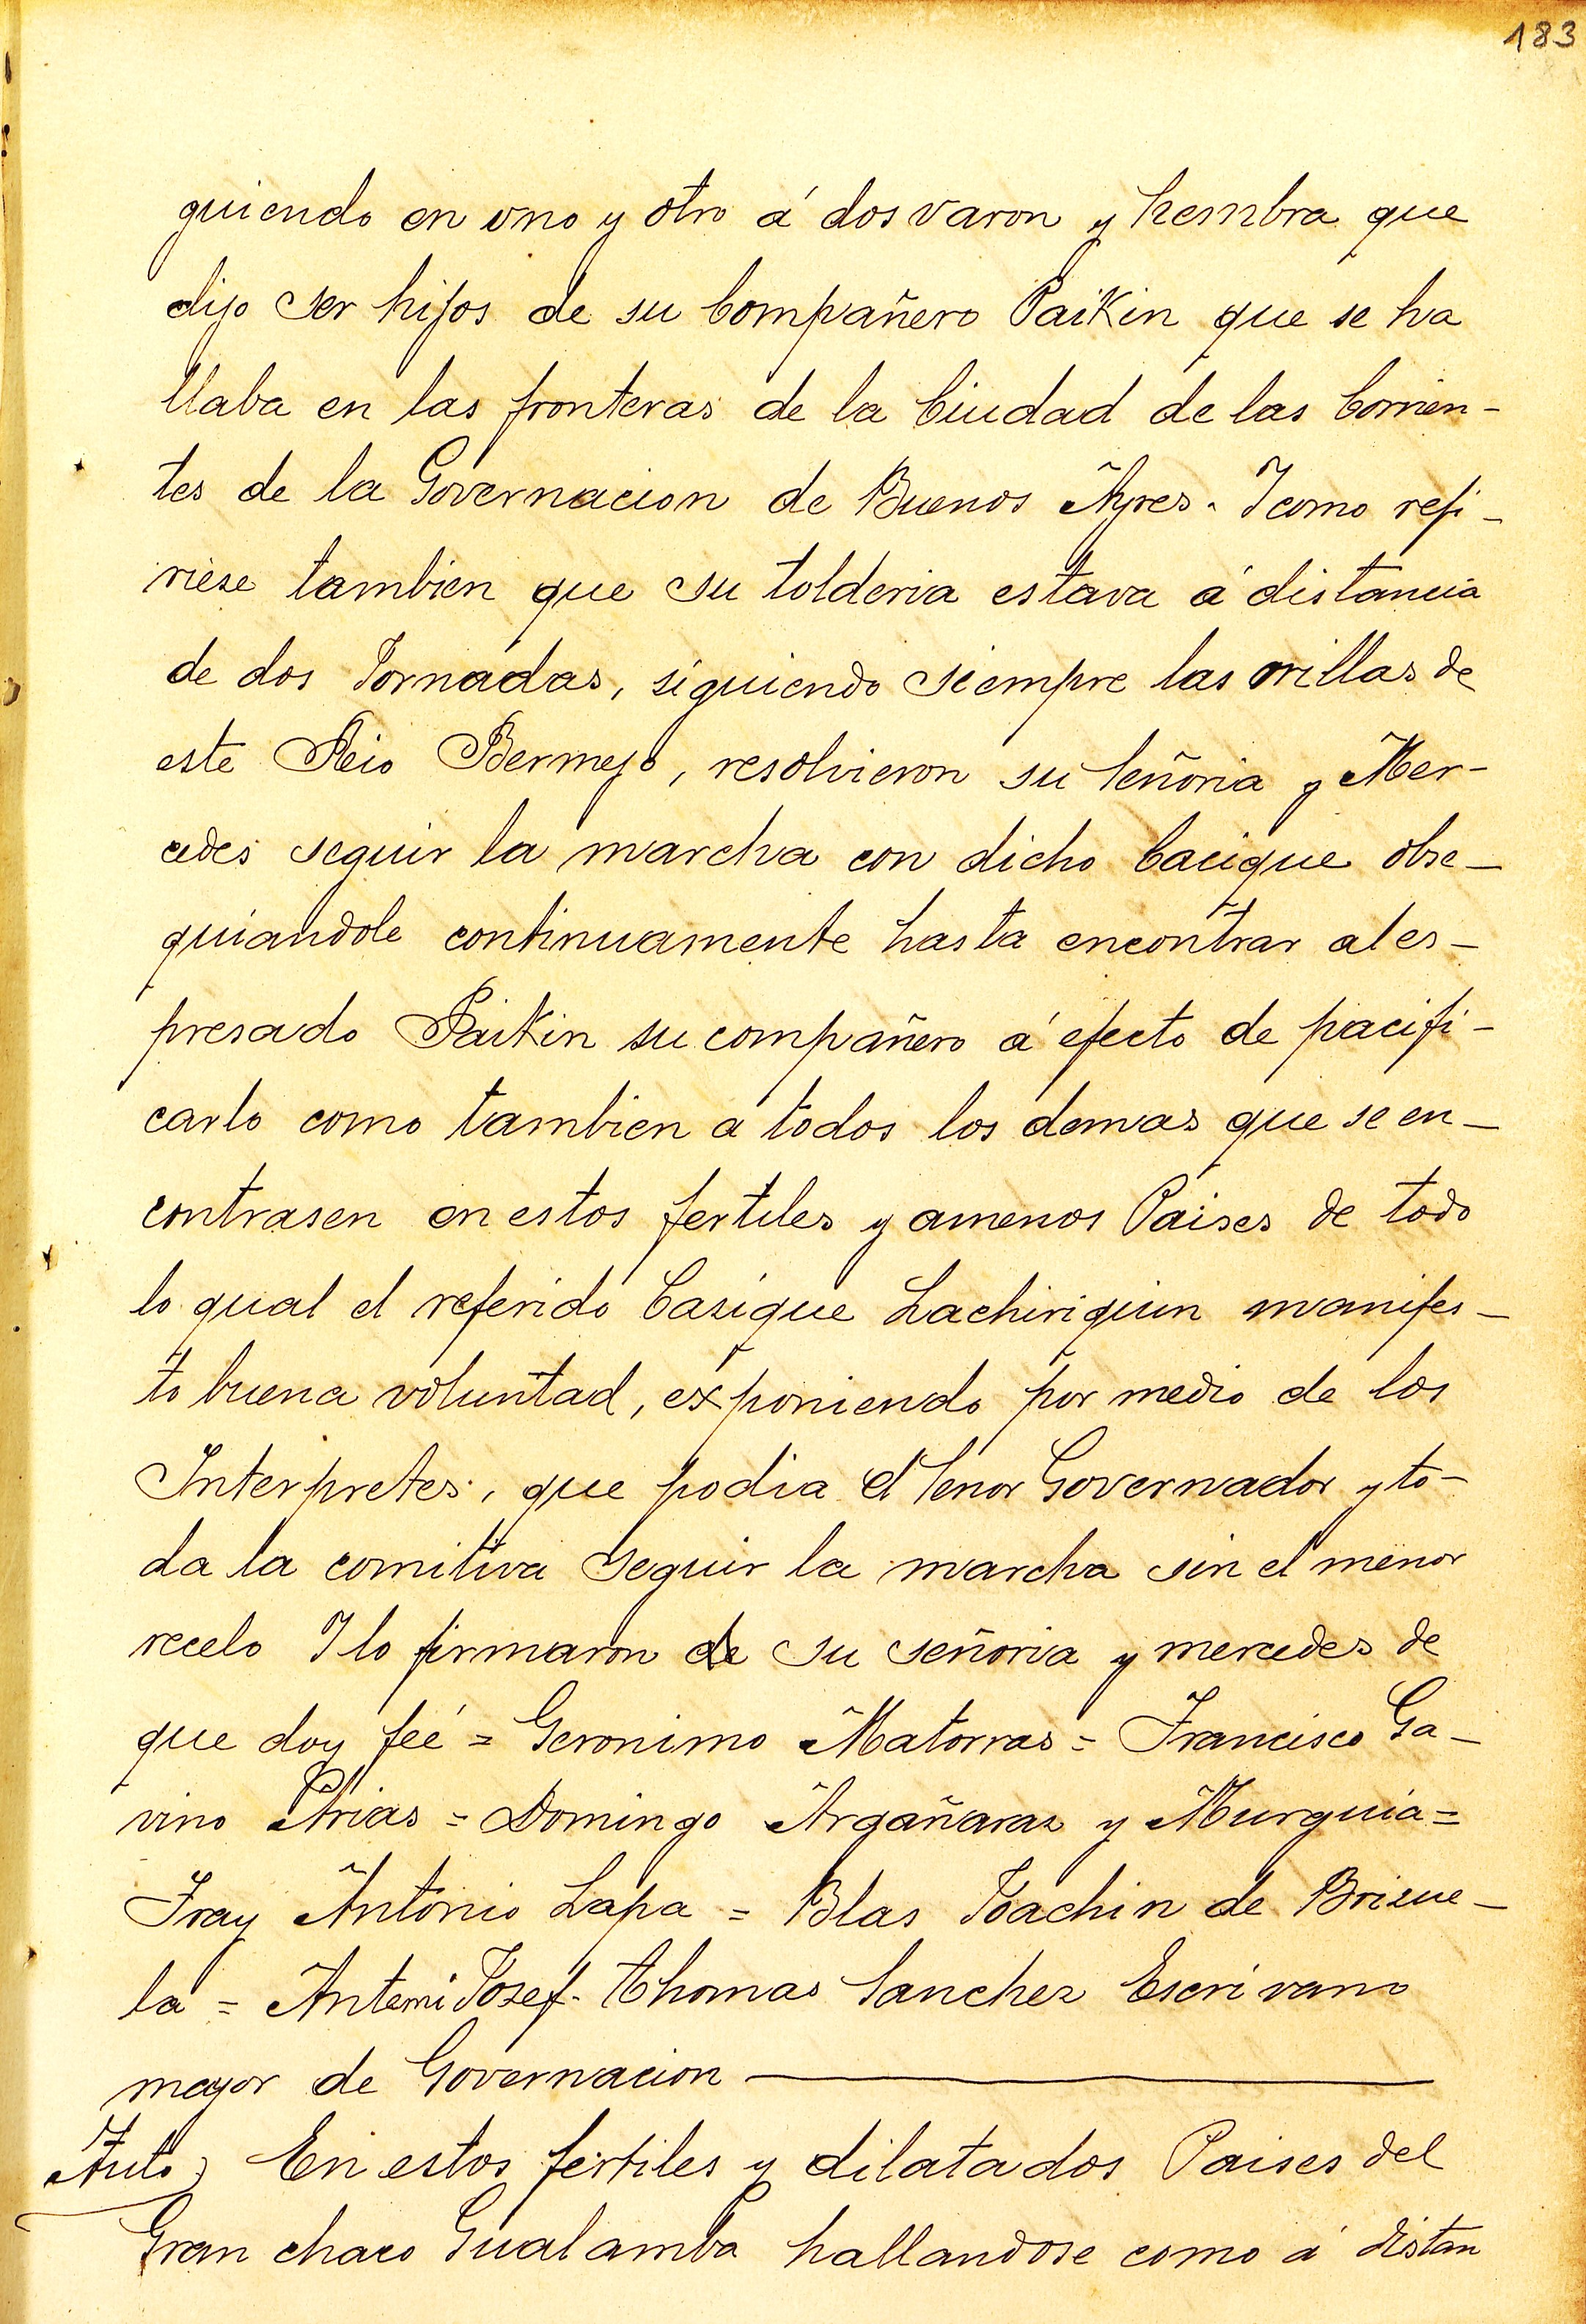 183
guiendo en uno y otro á dos varon y hembra que
dijo ser hijos de su Compañero Paikin que se ha
llaba en las fronteras de la Ciudad de las Corrien-
tes de la Governacion de Buenos Ayres. Y como refi-
riese tambien que su tolderia estava á distancia
de dos Jornadas, siguiendo siempre las orillas de
este Reio Bermejo, resolvieron su Señoria y Mer-
cedes seguir la marcha con dicho Cacique obse-
quiandole continuamente hasta encontrar al es-
presado Paikin su compañero á efecto de pacifi-
carlo como tambien a todos los demas que se en-
contrasen en estos fertiles y amenos Paises de todo
lo qual el referido Casique Lachiriquin manifes-
to buena voluntad, exponiendo por medio de los
Interpretes, que podia el Senor Governador y to-
da la comitiva seguir la marcha sin el menor
recelo Y lo firmaron de su señoria y mercedes de
que doy feé = Geronimo Matorras = Francisco Ga-
vino Arias = Domingo Argañaraz y Murguia =
Fray Antonio Lapa = Blas Joachin de Brizue-
la = Antemi Josef. Thomas Sanchez Escrivano
mayor de Governacion
Auto) En estos fertiles y dilatados Paises del
Gran chaco Gualamba hallandose como á distan